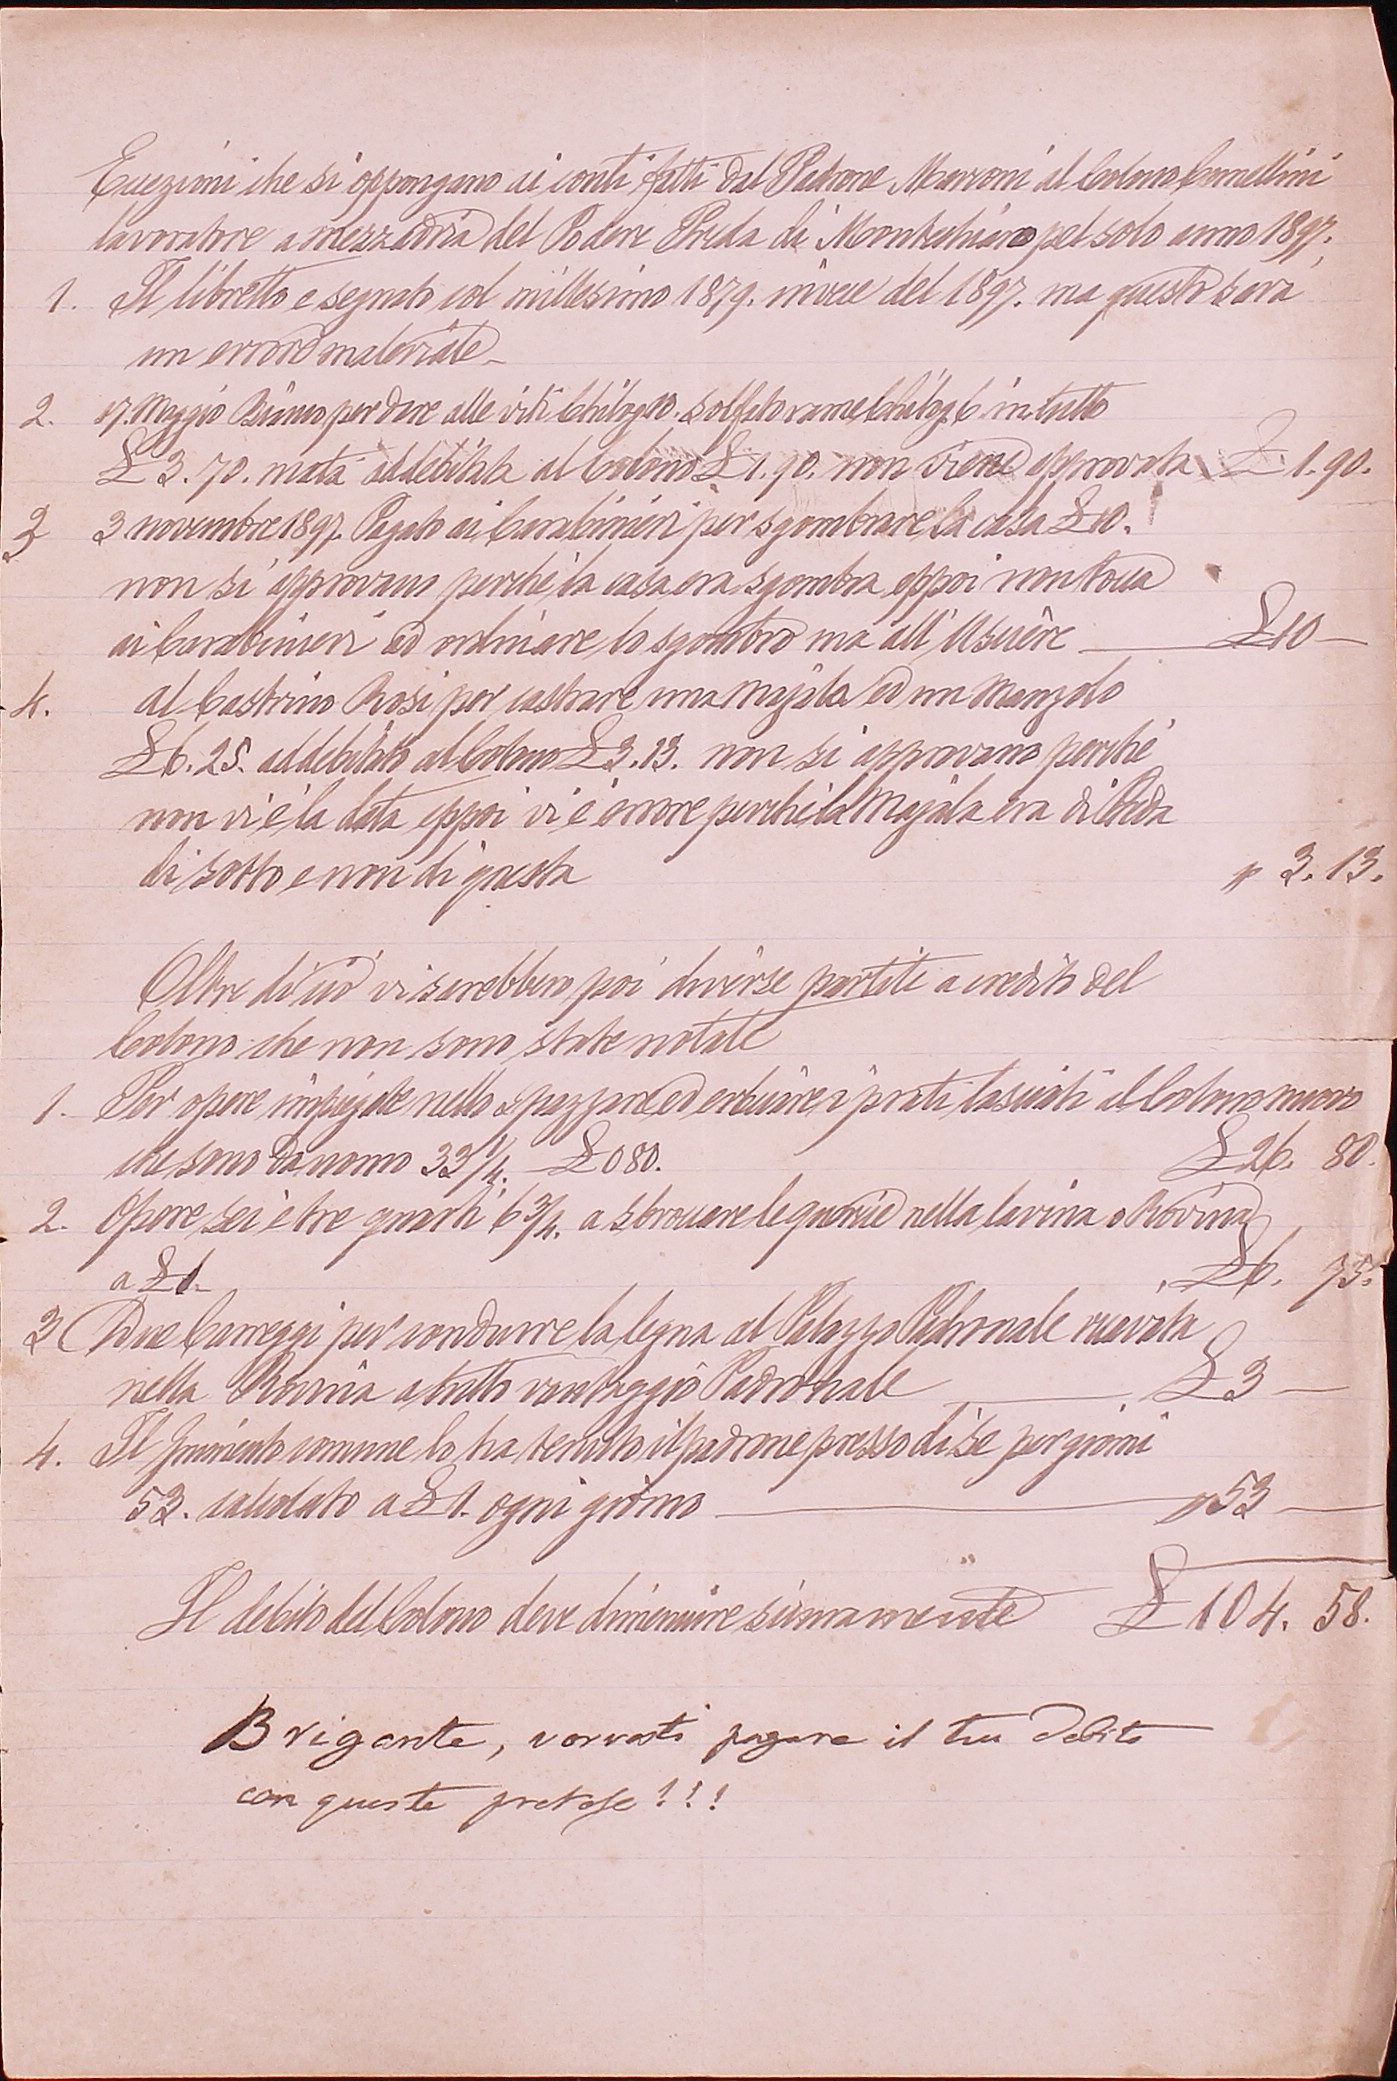 Eccezioni che si oppongano ai conti fatti dal Padrone Marzoni al Colono Camellini
lavoratore a mezzadria del Podere Preda di Montechiaro pel solo anno 1897.
1. Il libretto e segnato col millesimo 1879. invece del 1897. ma questo sarà
un errore materiale
2. 17. Maggio per dare alle viti Chilog 10. solfato rame Chilog. 6 in tutto
£ 3. 70. metà addebitata al Colono £ 1. 90. non viene approvata £ 1. 90.
3 3 novembre 1897. Pagato ai Carabinieri per sgombrare la casa £ 10.
non si approvano perchè la casa era sgombra, eppoi non tocca
ai Carabinieri ad ordinare lo sgombro ma all' Usciere £ 10
4. al Castrino Rosi per castrare una Majala ed un Manzolo
£ 6. 25. addebitato al Colono £ 3. 13. non si approvano perchè
non vi è la data eppoi vi è errore perchè la Majala era di Preda
di sotto e non di questa " 3. 13.
Oltre di ciò vi sarebbero poi diverse partite a credito del
Colono che non sono state notate
1. Per opere impiegate nello spazzare ed erbicare i prati lasciati al Colono nuovo
che sono da uomo 33 1/2. £ 0 80. £ 26. 80.
2. Opere sei e tre quarti 6 3/4. a sbroccare le quercie nella lavina o Rovina
a £ 1. £ 6. 75.
3 Due Carreggi per condurre la legna al Palazzo Padronale ricavata
nella Rovina a tutto vantaggio Padronale £ 3
4. Il Giumento comune lo ha tenuto il padrone presso di se per giorni
53. calcolato a £ 1. ogni giorno " 53
Il debito del Colono deve diminuire sicuramente £ 104. 58.
Brigante, vorresti pagare il tuo debito
con queste pretese!!!